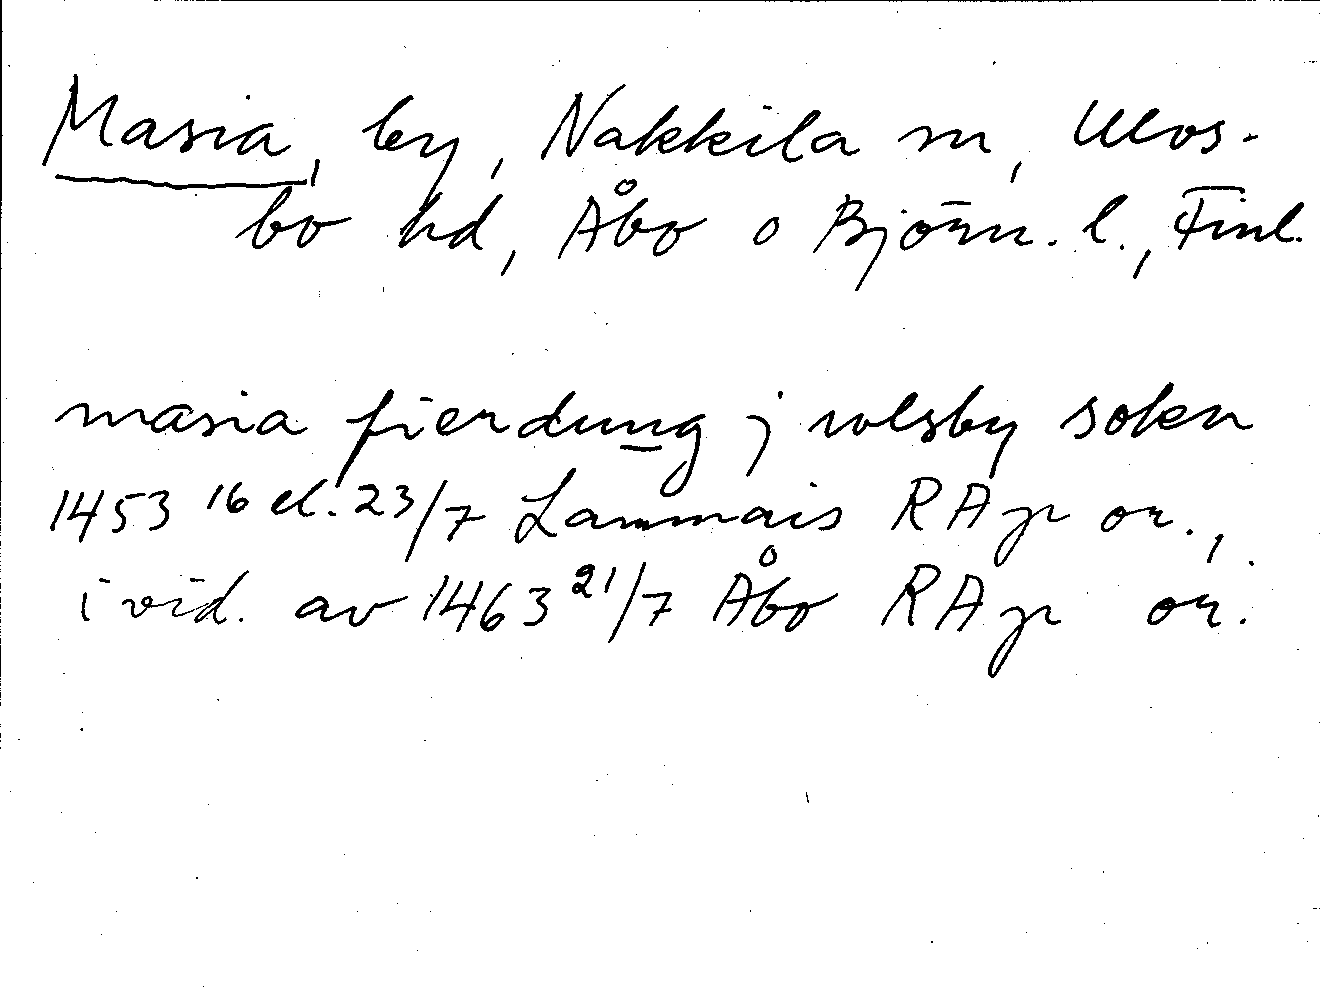 Masia, by, Nakkila sn, Ulvs-
bo hd, Åbo o Björn. l., Finl.
masia fierdung j wlsby sokn
1453 16 el. 23/7 Lammais RAp or.,
i vid. av 1463 21/7 Åbo RAp or.